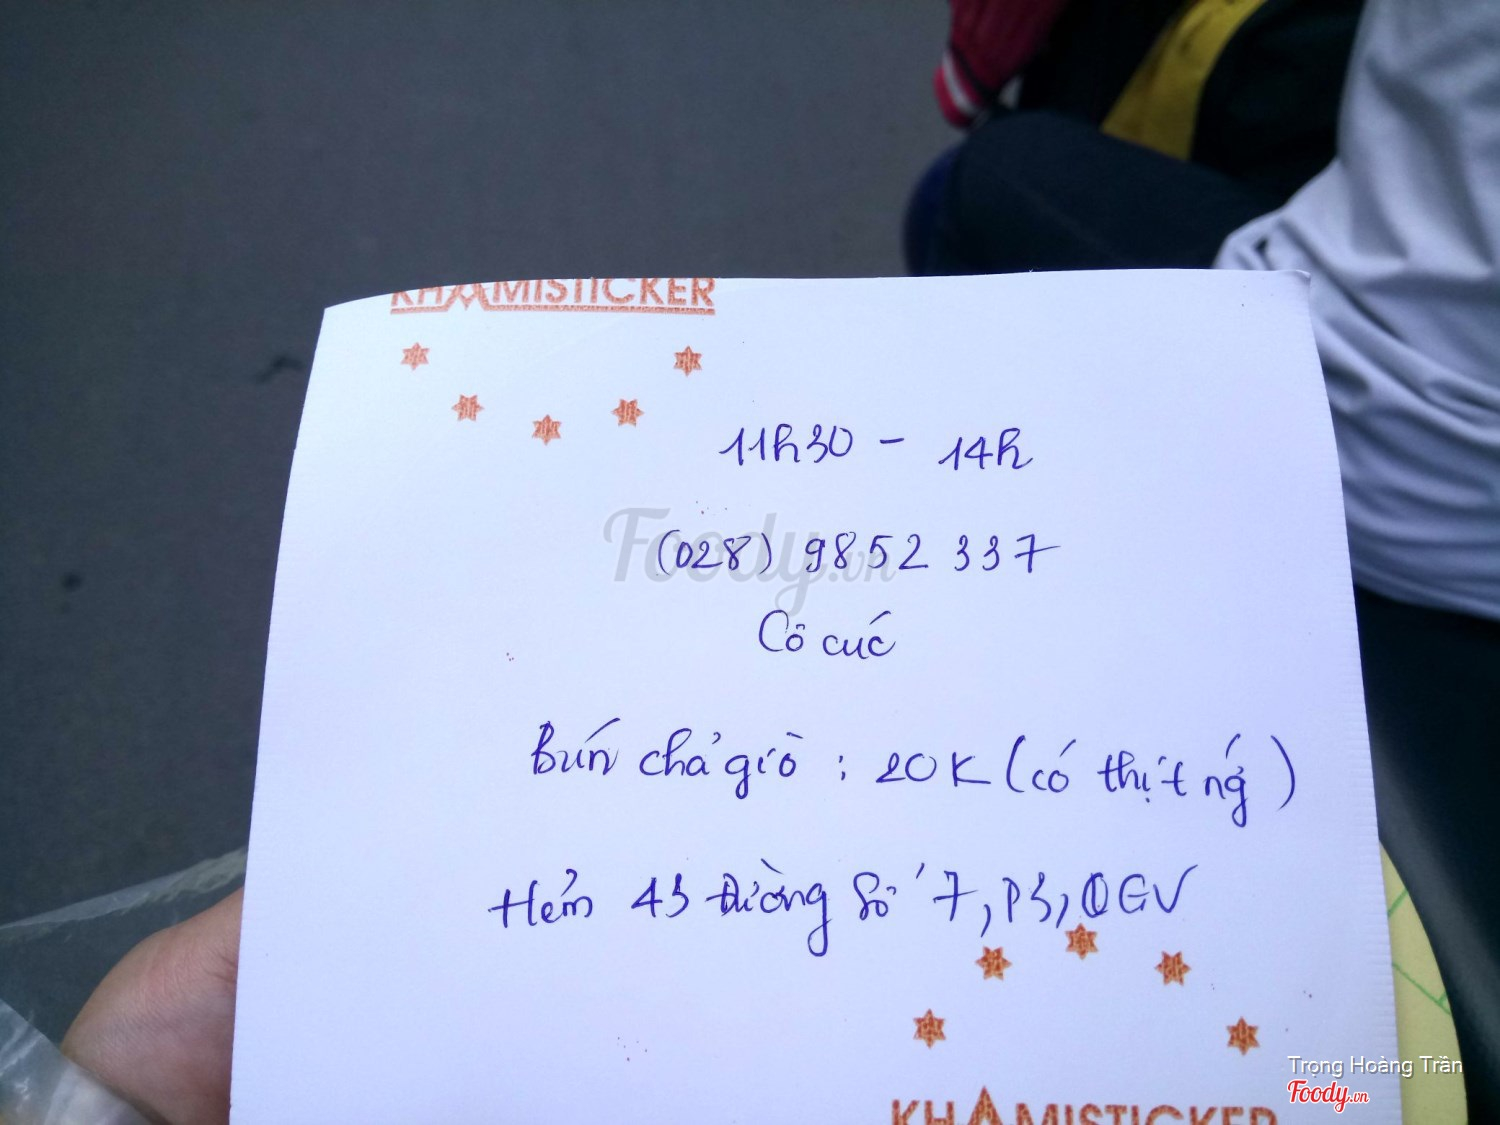 KHAMISTICKER
11h30 - 14h
Foody.vn
(028) 9852 337
Cô cúc
Bún chả giò : 20K (có thịt ng)
Hẻm 43 Đường Số 7, P3, QGV
KHAMISTICKER
Trọng Hoàng Trần
Foody.vn